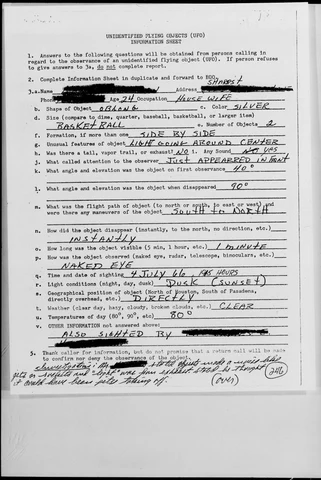 UNIDENTIFIED FLYING OBJECTS (UFO)
INFORMATION SHEET
1. Answers to the following questions will be obtained from persons calling in
regard to the observance of an unidentified flying object (UFO). If person refuses
to give answers to 3a, do not complete report.
2. Complete Information Sheet in duplicate and forward to BOO.
3.a. Name Address SHARPST
Phone Age 24 Occupation HOUSE WIFE
b. Shape of Object OBLONG c. Color SILVER
d. Size (compare to dime, quarter, baseball, basketball, or larger item)
BASKETBALL e. Number of Objects 2
f. Formation, if more than one SIDE BY SIDE
g. Unusual features of object LIGHT GOING AROUND CENTER
h. Was there a tail, vapor trail, or exhaust? NO i. Any Sound
j. What called attention to the observer JUST APPEARRED IN FRONT
k. What angle and elevation was the object on first observance 40°
l. What angle and elevation was the object when disappeared 90°
m. What was the flight path of object (north to south, east to west) and
were there any maneuvers of the object SOUTH TO NORTH
n. How did the object disappear (instantly, to the north, no direction, etc.)
INSTANTLY
o. How long was the object visible (5 min, 1 hour, etc.) 1 MINUTE
p. How was the object observed (naked eye, radar, telescope, binoculars, etc.)
NAKED EYE
q. Time and date of sighting 4 JULY 66 HOURS
r. Light conditions (night, day, dusk) DUSK (SUNSET)
s. Geographical position of object (North of Houston, South of Pasadena,
directly overhead, etc.) DIRECTLY
t. Weather (clear day, hazy, cloudy, broken clouds, etc.) CLEAR
u. Temperatures of day (80°, 90°, etc) 80°
v. OTHER INFORMATION not answered above:
ALSO SIGHTED BY
3. Thank caller for information, but do not promise that a return call will be made
to confirm nor deny the observance of the object.
stated objects made a
or and "light" was from exhaust thought
it could have been jets taking off. (over)